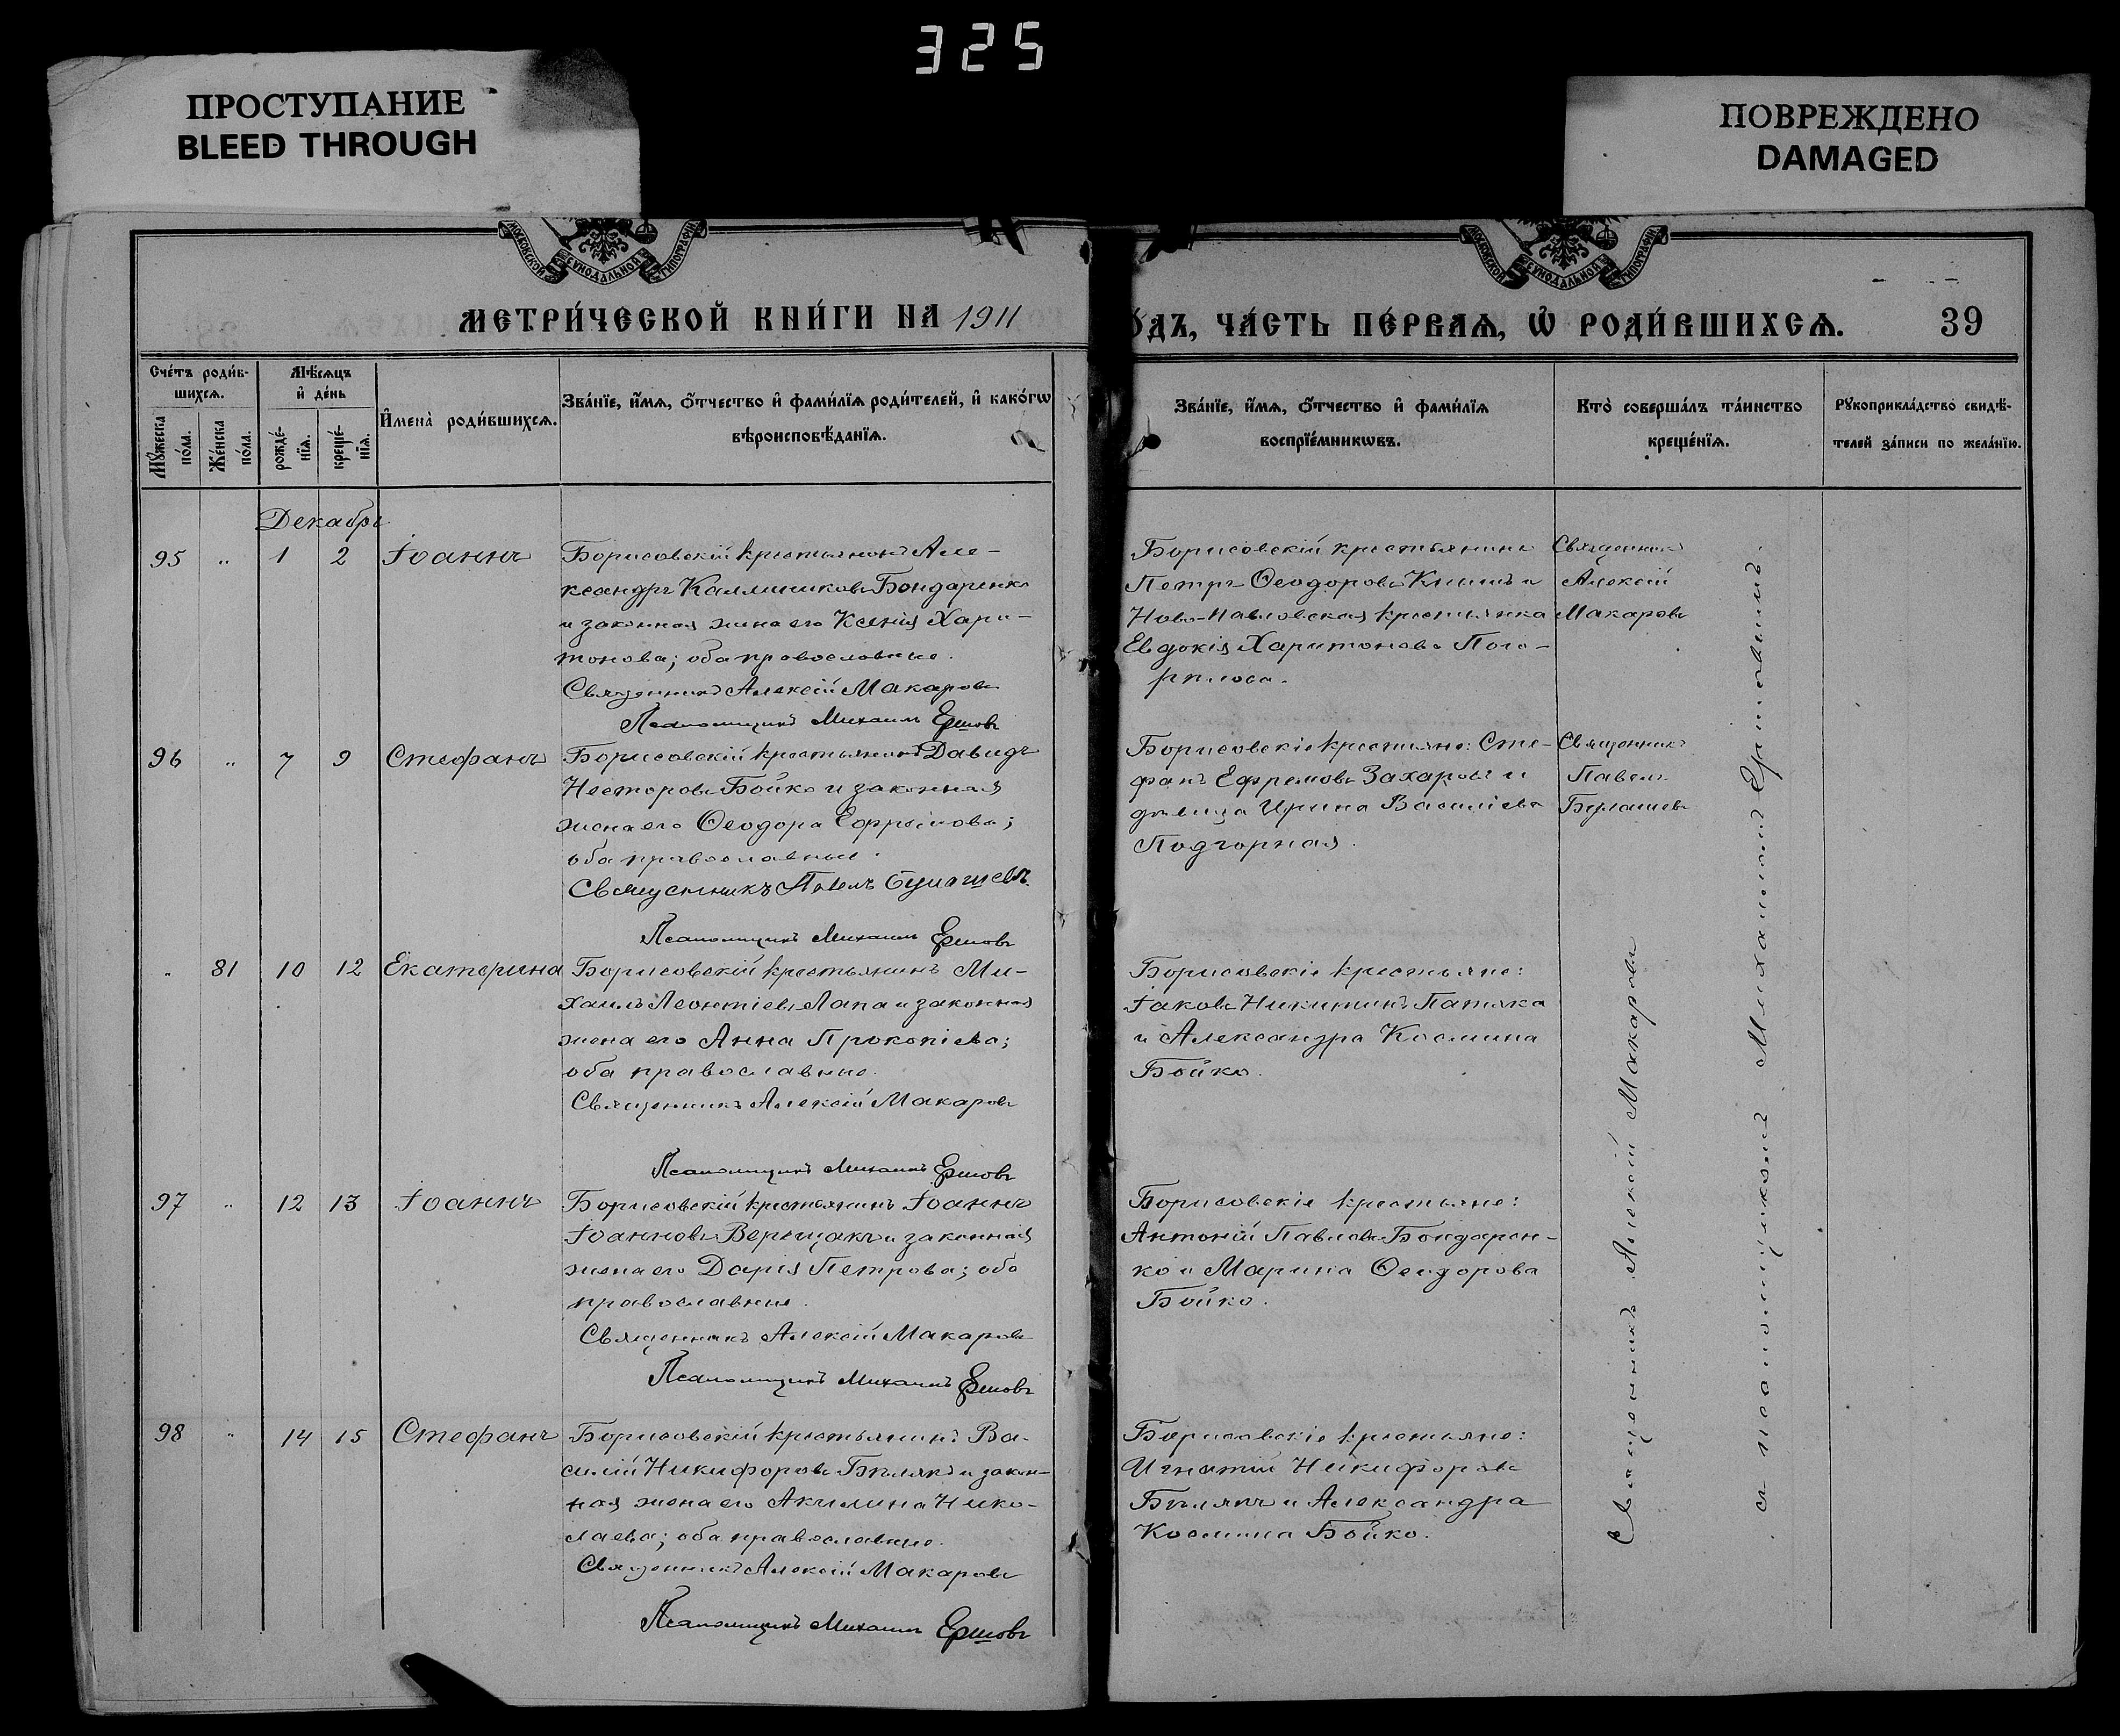 325
ПРОСТУПАНИЕ
BLEED THROUGH
ПОВРЕЖДЕНО
DAMAGED
МОСКОВСКОЙ СѴНОДАЛЬНОЙ ТИПОГРАФІИ
МОСКОВСКОЙ СѴНОДАЛЬНОЙ ТИПОГРАФІИ
МЕТРИ́ЧЕСКОЙ КНИ́ГИ НА 1911
ОДЪ, ЧА́СТЬ ПЕ́РВАѦ, Ѡ҆ РОДИ́ВШИХСѦ. 39
Сче́тъ роди́в-
шихсѧ.
Мꙋ́жеска по́ла.
Же́нска по́ла.
Мѣ́сѧцъ
и҆ де́нь
рожде́-
нїѧ.
креще́-
нїѧ.
И҆мена̀ роди́вшихсѧ.
Зва́нїе, и҆́мѧ, ѻ҆́тчество и҆ фами́лїѧ роди́телей, и҆ како́гѡ
вѣроисповѣ́данїѧ.
Зва́нїе, и҆́мѧ, ѻ҆́тчество и҆ фами́лїѧ
воспрїе́мникѡвъ.
Кто̀ соверша́лъ та́инство
креще́нїѧ.
Рꙋкоприкла́дство свидѣ́-
телей за́писи по жела́нїю.
Декабрь
95 " 1 2 Іоаннъ
Борисовскій крестьянинъ Але-
ксандръ Каллиниковъ Бондаренко
и законная жена его Ксенія Хари-
тонова; оба православные.
Священникъ Алексій Макаровъ
Псаломщикъ Михаилъ Ершовъ
Борисовскій крестьянинъ
Петръ Ѳеодоровъ Книшъ и
Ново-Павловская крестьянка
Евдокія Харитонова Пого-
рѣлова.
Священникъ
Алексій
Макаровъ
96 " 7 9 Стефанъ
Борисовскій крестьянинъ Давидъ
Несторовъ Бойко и законная
жена его Ѳеодора Ефремова;
оба православные.
Священникъ Павелъ Булашевъ
Псаломщикъ Михаилъ Ершовъ
Борисовскіе крестьяне: Сте-
фанъ Ефремовъ Захаровъ и
дѣвица Ирина Василіева
Подгорная.
Священникъ
Павелъ
Булашевъ
" 81 10 12 Екатерина
Борисовскій крестьянинъ Ми-
хаилъ Леонтіевъ Лапа и законная
жена его Анна Прокопіева;
оба православные.
Священникъ Алексій Макаровъ
Псаломщикъ Михаилъ Ершовъ
Борисовскіе крестьяне:
Іаковъ Никитинъ Патяка
и Александра Космина
Бойко.
97 " 12 13 Іоаннъ
Борисовскій крестьянинъ Іоаннъ
Іоанновъ Верещакъ и законная
жена его Дарія Петрова; оба
православные.
Священникъ Алексій Макаровъ
Псаломщикъ Михаилъ Ершовъ
Борисовскіе крестьяне:
Антоній Павловъ Бондарен-
ко и Марина Ѳеодорова
Бойко.
98 " 14 15 Стефанъ
Борисовскій крестьянинъ Ва-
силій Никифоровъ Бѣлякъ и закон-
ная жена его Акилина Нико-
лаева; оба православные.
Священникъ Алексій Макаровъ
Псаломщикъ Михаилъ Ершовъ
Борисовскіе крестьяне:
Игнатій Никифоровъ
Бѣлякъ и Александра
Космина Бойко.
Священникъ Алексій Макаровъ
съ псаломщикомъ Михаиломъ Ершовымъ.